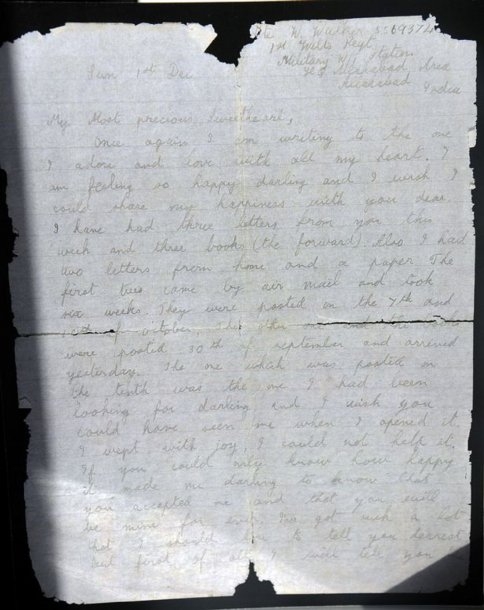 W. Walker 5569374
1st Wilts Regt
Military Station
Allahabad Area
Allahabad
India
Sun 1st Dec
My Most precious Sweetheart,
Once again I am writing to the one
I adore and love with all my heart. I
am feeling so happy darling and I wish I
could share my happiness with you dear.
I have had three letters from you this
week and three books (the forward). Also I had
two letters from home and a paper. The
first two came by air mail and took
six weeks. They were posted on the 7th and
10th of October. The other and the
were posted 30th of september and arrived
yesterday. The one which was posted on
the tenth was the one I had been
looking for darling and I wish you
could have seen me when I opened it.
I wept with joy, I could not help it.
If you could only know how happy
it made me darling to know that
you accepted me and that you will
be mine for ever. I've got such a lot
that I should like to tell you dearest
but first of all I will tell you